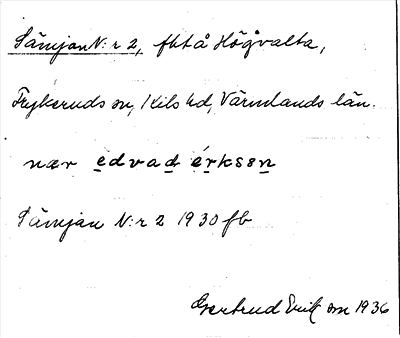 Sämjan N:r 2, fht å Högvalta,
Frykeruds sn, Kils hd, Värmlands län.
nær edvad érksen
Sämjan N:r 2 1930 fb
Gertrud Erik sn 1936